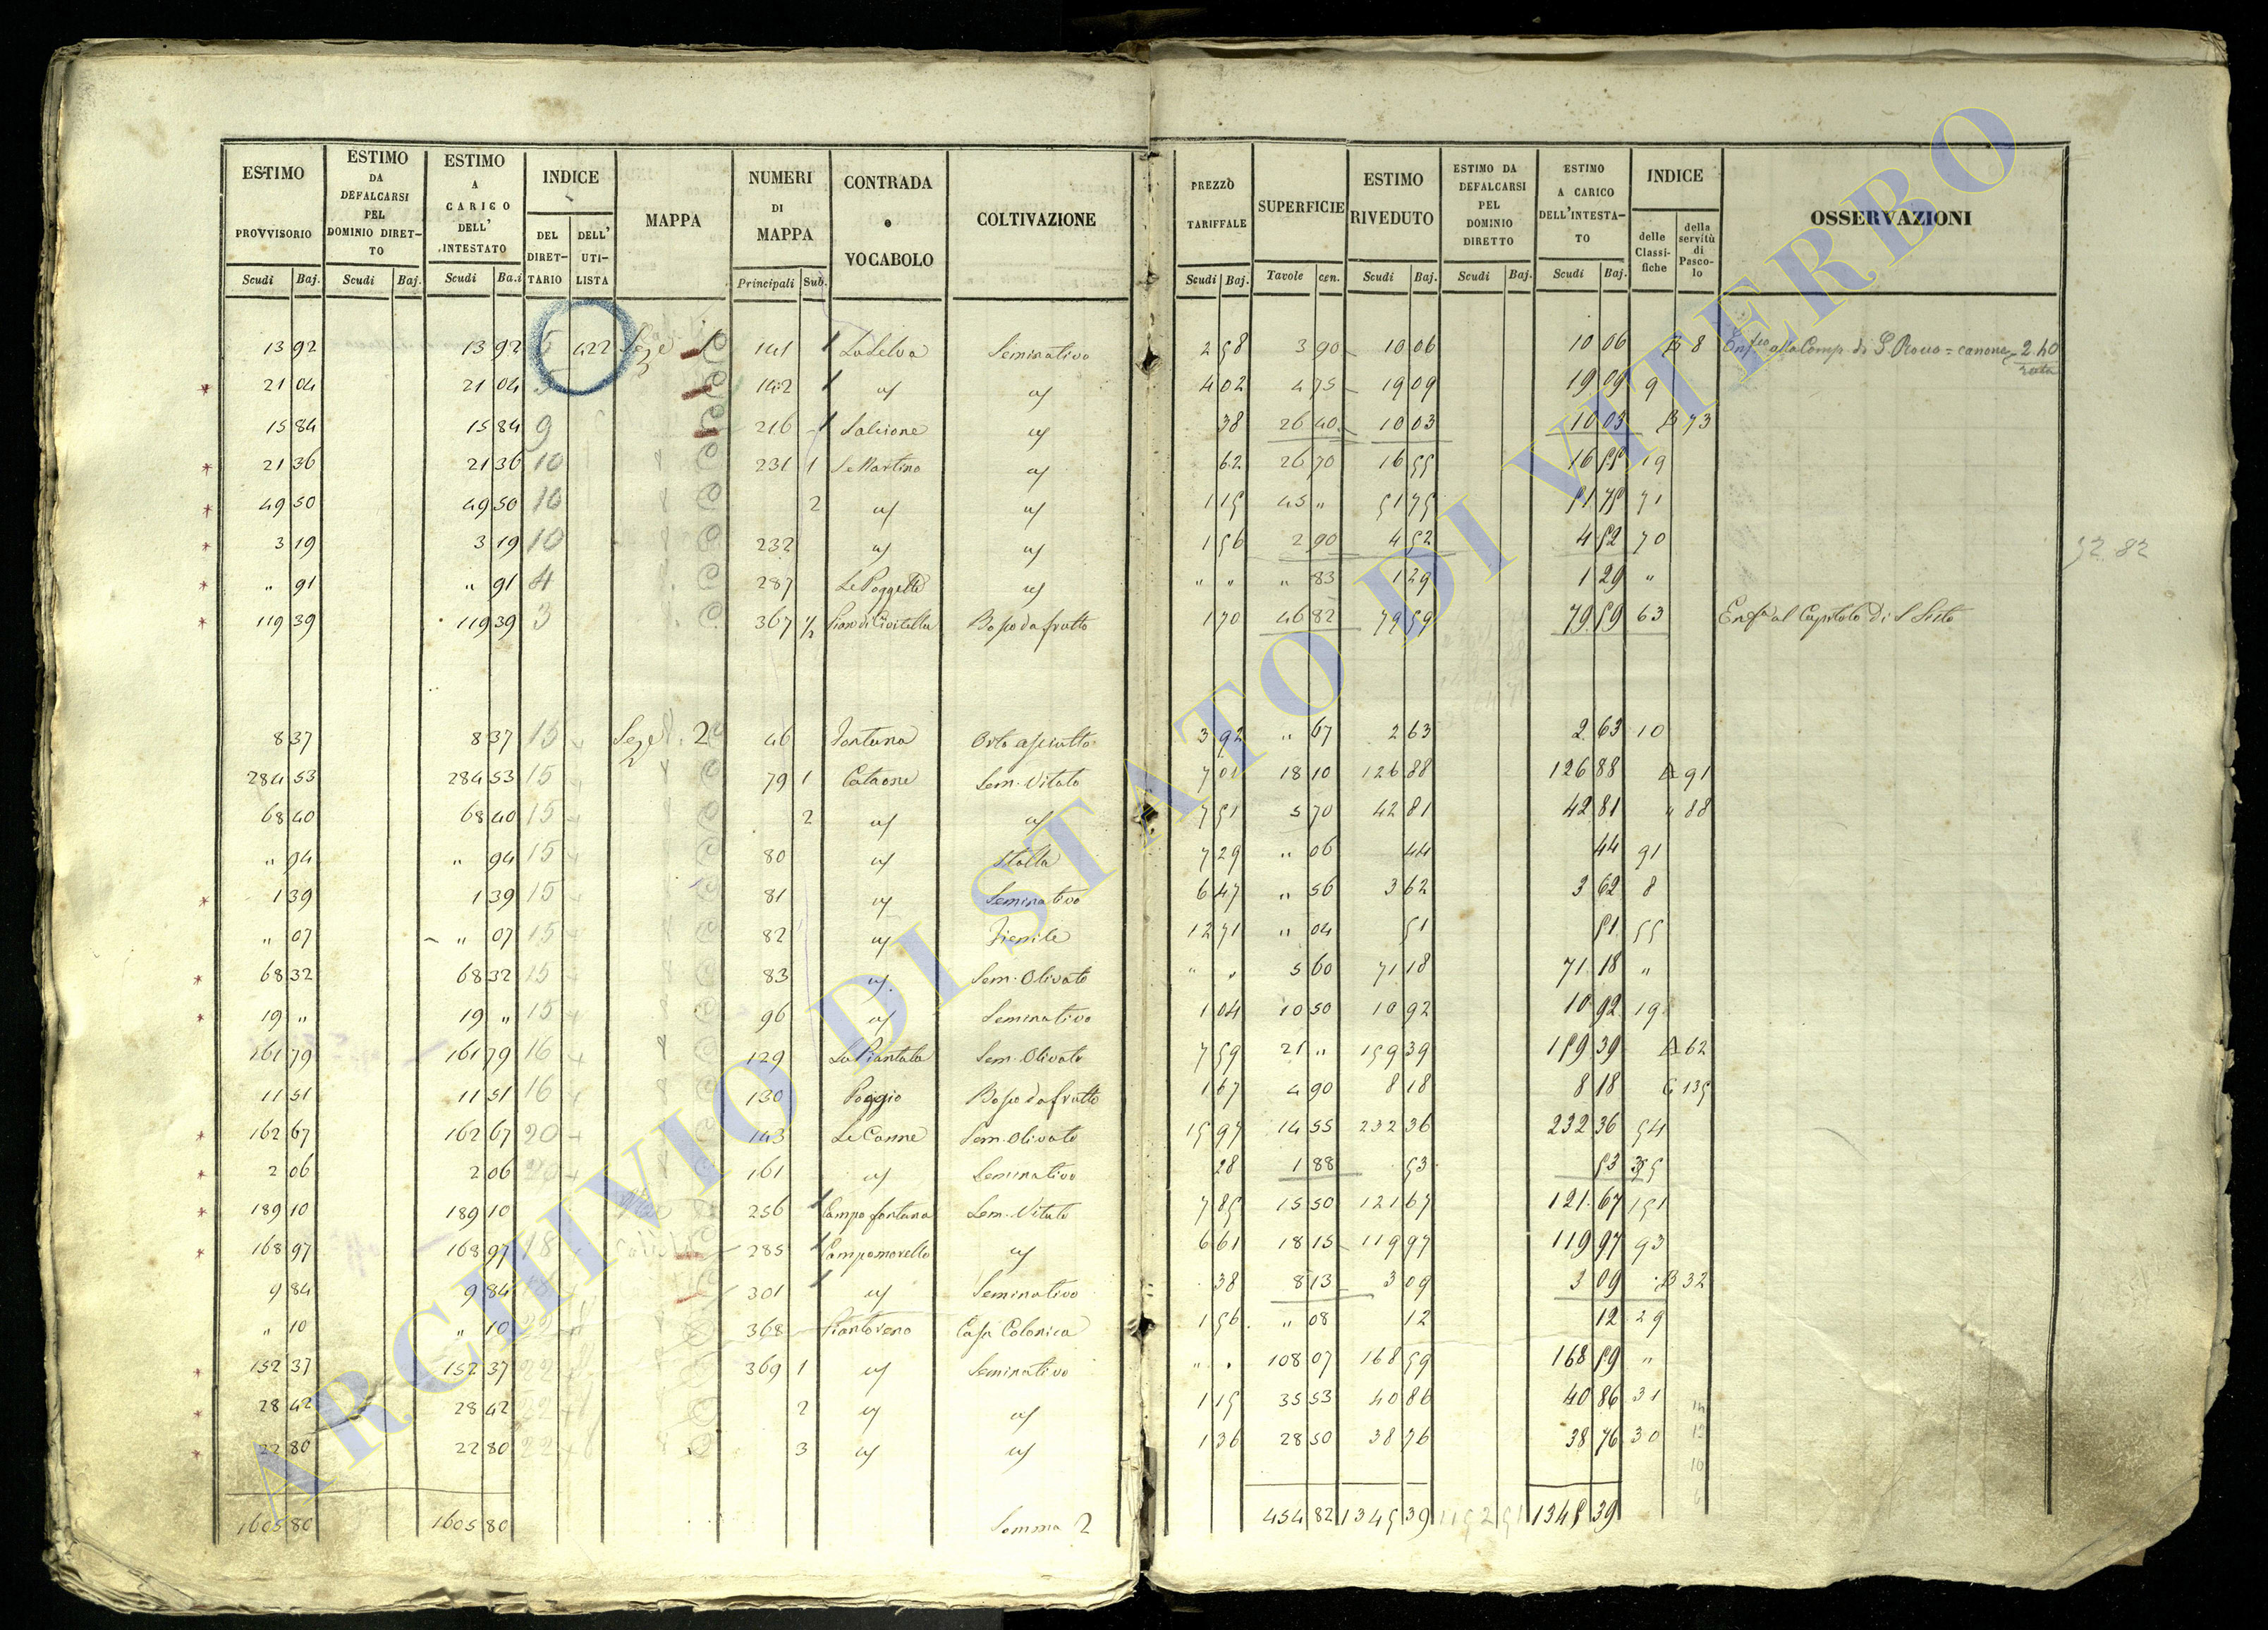 ESTIMO PROVVISORIO | ESTIMO DA DEFALCARSI PEL DOMINIO DIRETTO | ESTIMO A CARICO DELL' INTESTATO | INDICE | MAPPA | NUMERI DI MAPPA | CONTRADA o VOCABOLO | COLTIVAZIONE | PREZZO TARIFFALE | SUPERFICIE | ESTIMO RIVEDUTO | ESTIMO DA DEFALCARSI PEL DOMINIO DIRETTO | ESTIMO A CARICO DELL'INTESTATO | INDICE | OSSERVAZIONI
DEL DIRETTARIO | DELL' UTILISTA | delle Classifiche | della servitù di Pascolo
Scudi | Baj. | Scudi | Baj. | Scudi | Ba.i | Principali | Sub. | Scudi | Baj. | Tavole | cen. | Scudi | Baj. | Scudi | Baj. | Scudi | Baj.
13 92 | 13 92 | 422 | 1 | 141 | 1 | La Selva | Seminativo | 2 58 | 3 90 | 10 06 | 10 06 | B 8 | alla Comp. di S. Rocco = canone 2.40
21 04 | 21 04 | 142 | 1 | " | " | 4 02 | 4 75 | 19 09 | 19 09 | 9
15 84 | 15 84 | 9 | 216 | 1 | Salcione | " | 38 | 26 40 | 10 03 | 10 03 | B 73
* 21 36 | 21 36 | 10 | 231 | 1 | S. Martino | " | 62 | 26 70 | 16 55 | 16 55 | 19
* 49 50 | 49 50 | 10 | 2 | " | " | 1 15 | 45 " | 51 75 | 51 75 | 71
* 3 19 | 3 19 | 10 | 232 | " | " | 1 56 | 2 90 | 4 52 | 4 52 | 70 | 52 82
* " 91 | " 91 | 4 | 287 | Le Poggette | " | " " | " 83 | 1 29 | 1 29 | "
* 119 39 | 119 39 | 3 | 367 | 1/2 | Pian di Civitella | Bosco da frutto | 1 70 | 46 82 | 79 59 | 79 59 | 63 | al Capitolo di S Sisto
8 37 | 8 37 | 15 | 2 | 46 | Fontana | Orto asciutto | 3 92 | " 67 | 2 63 | 2 63 | 10
284 53 | 284 53 | 15 | 79 | 1 | Cataone | Sem. Vitato | 7 01 | 18 10 | 126 88 | 126 88 | A 91
68 40 | 68 40 | 15 | 2 | " | " | 7 51 | 5 70 | 42 81 | 42 81 | " 88
" 94 | " 94 | 15 | 80 | " | Stalla | 7 29 | " 06 | 44 | 44 | 91
* 1 39 | 1 39 | 15 | 81 | " | Seminativo | 6 47 | " 56 | 3 62 | 3 62 | 8
" 07 | " 07 | 15 | 82 | " | Fienile | 12 71 | " 04 | 51 | 51 | 55
* 68 32 | 68 32 | 15 | 83 | " | Sem. Olivato | " " | 5 60 | 71 18 | 71 18 | "
* 19 " | 19 " | 15 | 96 | " | Seminativo | 1 04 | 10 50 | 10 92 | 10 92 | 19
161 79 | 161 79 | 16 | 129 | La Piantata | Sem. Olivato | 7 59 | 21 " | 159 39 | 159 39 | A 62
11 51 | 11 51 | 16 | 130 | Poggio | Bosco da frutto | 1 67 | 4 90 | 8 18 | 8 18 | C 135
* 162 67 | 162 67 | 20 | 143 | Le Canne | Sem. Olivato | 15 97 | 14 55 | 232 36 | 232 36 | 54
* 2 06 | 2 06 | 20 | 161 | " | Seminativo | 28 | 1 88 | 53 | 53
* 189 10 | 189 10 | 256 | 1 | Campo fontana | Sem. Vitato | 7 85 | 15 50 | 121 67 | 121 67 | 151
* 168 97 | 168 97 | 18 | 285 | 1 | Campomorello | " | 6 61 | 18 15 | 119 97 | 119 97 | 93
9 84 | 9 84 | 18 | 301 | 1 | " | Seminativo | 38 | 8 13 | 3 09 | 3 09 | B 32
" 10 | " 10 | 22 | 368 | Piantoreno | Casa Colonica | 1 56 | " 08 | 12 | 12 | 29
* 152 37 | 152 37 | 22 | 369 | 1 | " | Seminativo | " " | 108 07 | 168 59 | 168 59 | "
* 28 42 | 28 42 | 22 | 2 | " | " | 1 15 | 35 53 | 40 86 | 40 86 | 31
* 22 80 | 22 80 | 22 | 3 | " | " | 1 36 | 28 50 | 38 76 | 38 76 | 30
1605 80 | 1605 80 | Somma 2 | 454 82 | 1345 39 | 1345 39
ARCHIVIO DI STATO DI VITERBO